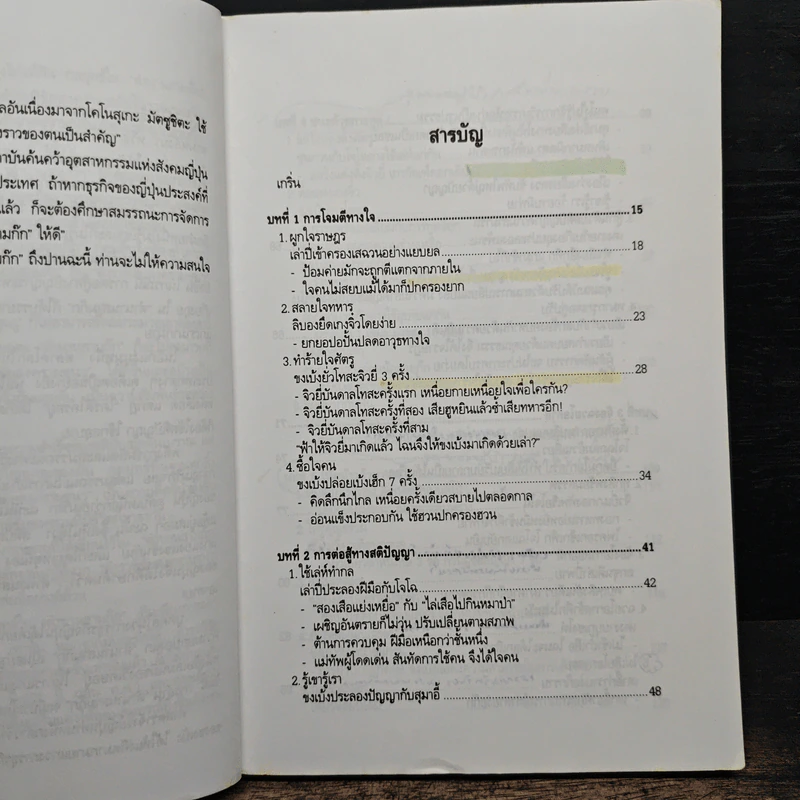 ลอันเนื่องมาจากโคโนสุเกะ มัตซูชิตะ ใช้
งราวของตนเป็นสำคัญ"
าบันค้นคว้าอุตสาหกรรมแห่งสังคมญี่ปุ่น
ประเทศ ถ้าหากธุรกิจของญี่ปุ่นประสงค์ที่
แล้ว ก็จะต้องศึกษาสมรรถนะการจัดการ
มก๊ก" ให้ดี"
มก๊ก" ถึงปานฉะนี้ ท่านจะไม่ให้ความสนใจ
สารบัญ
เกริ่น
บทที่ 1 การโจมตีทางใจ 15
1. ผูกใจราษฎร
เล่าปี่เข้าครองเสฉวนอย่างแยบยล 18
- ป้อมค่ายมักจะถูกตีแตกจากภายใน
- ใจคนไม่สยบแม้ได้มาก็ปกครองยาก
2. สลายใจทหาร
ลิบองยึดเกงจิ๋วโดยง่าย 23
- ยกยอปอปั้นปลดอาวุธทางใจ
3. ทำร้ายใจศัตรู
ขงเบ้งยั่วโทสะจิวยี่ 3 ครั้ง 28
- จิวยี่บันดาลโทสะครั้งแรก เหนื่อยกายเหนื่อยใจเพื่อใครกัน?
- จิวยี่บันดาลโทสะครั้งที่สอง เสียฮูหยินแล้วซ้ำเสียทหารอีก!
- จิวยี่บันดาลโทสะครั้งที่สาม
"ฟ้าให้จิวยี่มาเกิดแล้ว ไฉนจึงให้ขงเบ้งมาเกิดด้วยเล่า?"
4. ซื้อใจคน
ขงเบ้งปล่อยเบ้งเฮ็ก 7 ครั้ง 34
- คิดลึกนึกไกล เหนื่อยครั้งเดียวสบายไปตลอดกาล
- อ่อนแข็งประกอบกัน ใช้ฮวนปกครองฮวน
บทที่ 2 การต่อสู้ทางสติปัญญา 41
1. ใช้เล่ห์ทำกล
เล่าปี่ประลองฝีมือกับโจโฉ 42
- "สองเสือแย่งเหยื่อ" กับ "ไล่เสือไปกินหมาป่า"
- เผชิญอันตรายก็ไม่วุ่น ปรับเปลี่ยนตามสภาพ
- ต้านการควบคุม ฝีมือเหนือกว่าชั้นหนึ่ง
- แม่ทัพผู้โดดเด่น สันทัดการใช้คน จึงได้ใจคน
2. รู้เขารู้เรา
ขงเบ้งประลองปัญญากับสุมาอี้ 48